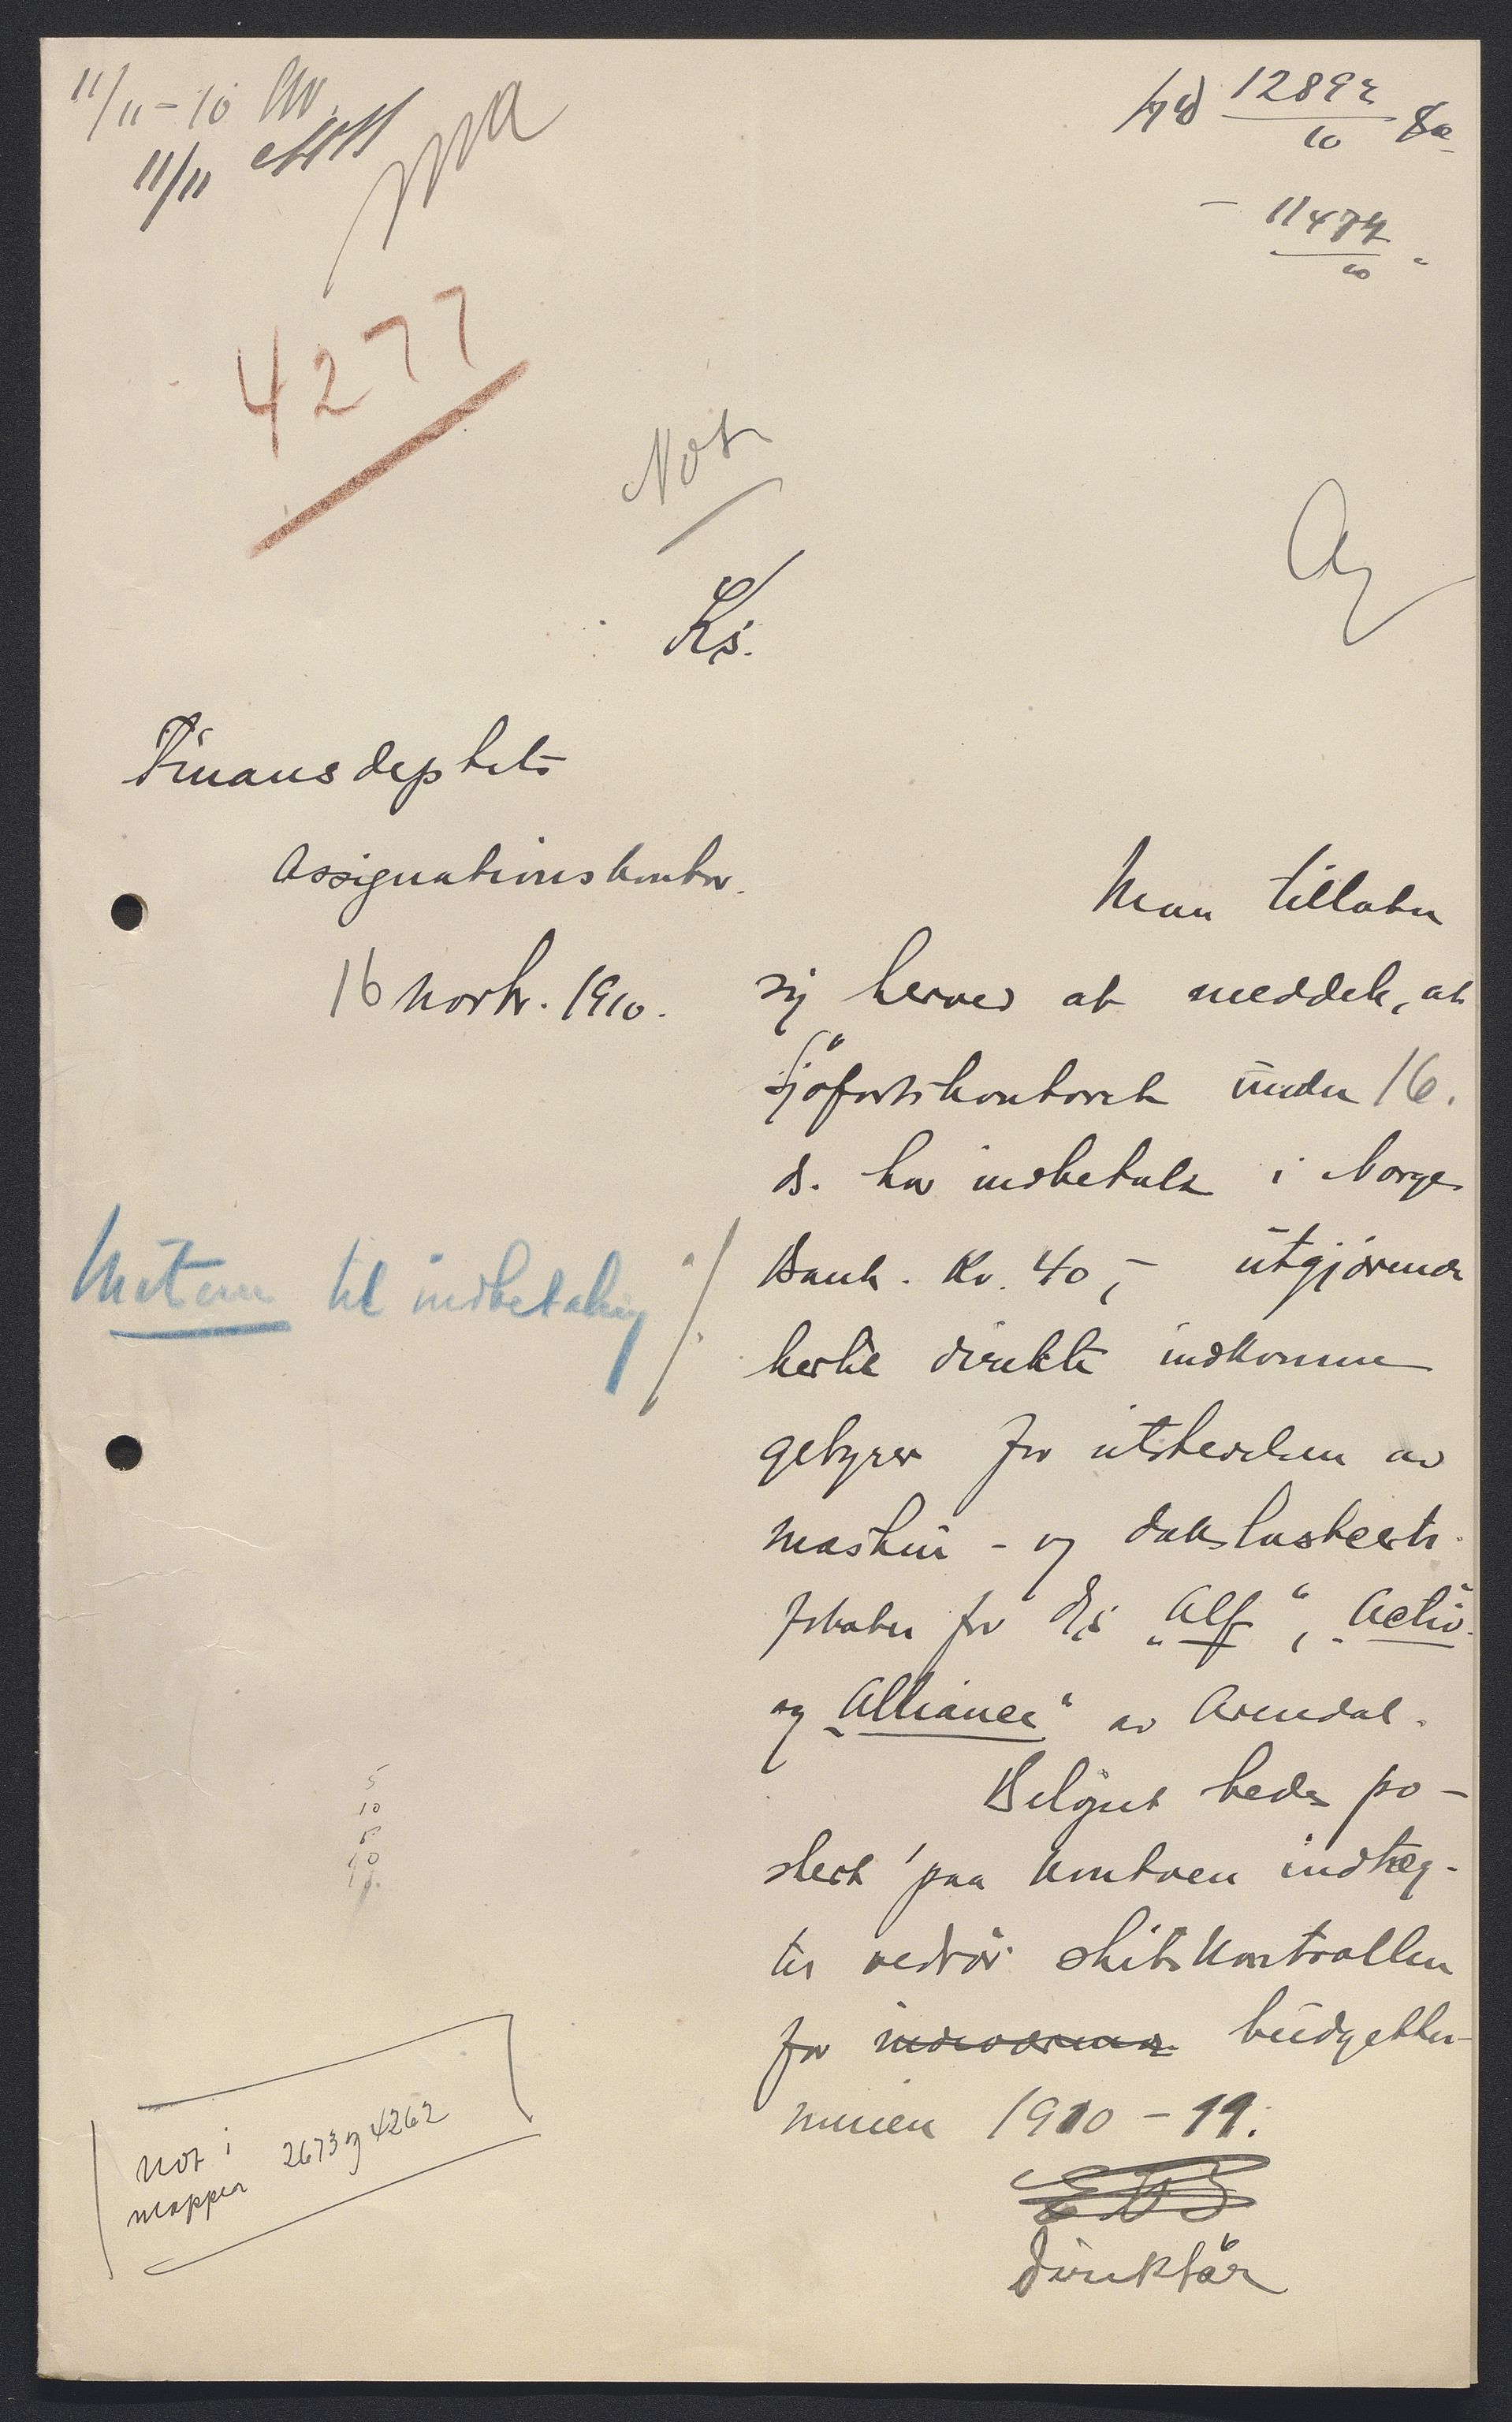 11/11-10
11/11
12892
10
11474
10
4277
Not
Ks.
Finansdeptets
Assignationskontor.
16 novbr. 1910.
Man tillater
sig herved at meddele, at
Sjöfartskontoret under 16.
ds. har indbetalt i Norges
Bank. Kr. 40,- utgjörende
hertil direkte indkomne
gebyrer for utstedelsen av
maskin- og dækslastcerti-
fikater for D/S "Alf", "Activ"
og "Alliance" av Arendal.
Belöpet bedes po-
stert paa kontoen indtæg-
ter vedrör skibskontrollen
for indeværende budgetter-
minen 1910-11.
Direktör
Maten til indbetaling ./.
5
10
5
Not i
mapper 2673 og 4262